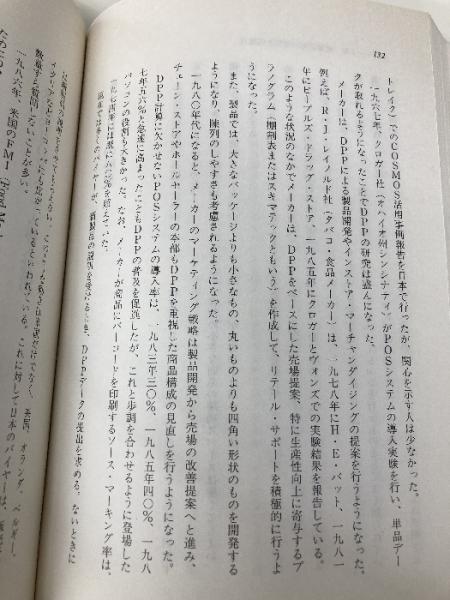 132
トレイク）でのCOSMOS活用事例報告を日本で行ったが、関心を示す人は少なかった。
一九六七年、クロガー社（オハイオ州シンシナティ）がPOSシステムの導入実験を行い、単品デー
タが取れるようになったことでDPPの研究は盛んになった。
メーカーは、DPPによる製品開発やインストア・マーチャンダイジングの提案を行うようになった。
例えば、R・J・レイノルド社（タバコ・食品メーカー）は、一九七八年にH・E・バット、一九八一
年にピープルズ・ドラッグ・ストア、一九八五年にクロガーとヴォンズでの実験結果を報告している。
このような状況のなかでメーカーは、DPPをベースにした売場提案、特に生産性向上に寄与するプ
ラノグラム（棚割表またはスキマティックともいう）を作成して、リテール・サポートを積極的に行うよ
うになった。
また、製品では、大きなパッケージよりも小さなもの、丸いものよりも四角い形状のものを開発する
ようになり、陳列のしやすさも考慮されるようになった。
一九八〇年代になると、メーカーのマーケティング戦略は製品開発から売場の改善提案へと進み、
チェーン・ストアやホールセーラーの本部もDPPを重視した商品構成の見直しを行うようになった。
DPP計算に欠かせないPOSシステムの導入率は、一九八三年三〇%、一九八五年四〇%、一九八
七年五六%と急速に高まったこともDPPの普及を促進したが、これと歩調を合わせるように登場した
パソコンの役割も大きかった。なお、メーカーが商品にバーコードを印刷するソース・マーキング率は、
一九七四年にはすでに八%を超えていた。
バイヤーが、新製品の説明を受けるとき、DPPデータの提出を求める。ないときに
米国、オランダ、ベルギー、
いるといわれている。これに対して日本のバイヤーは、
敬遠すら質問しないことが多い。
一九八六年、米国のFMI（Food M
ための